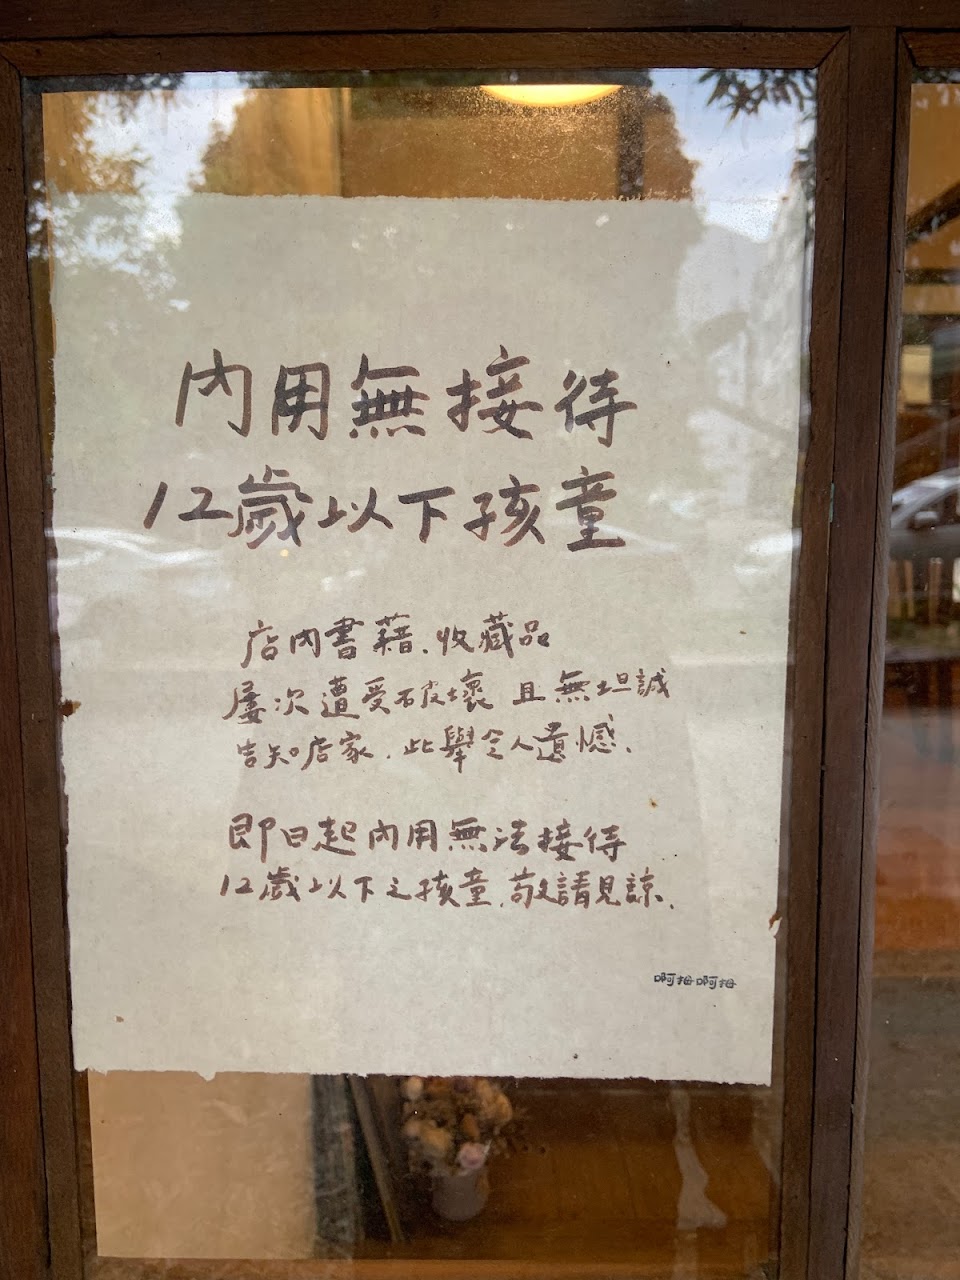 內用無接待
12歲以下孩童
店內書籍、收藏品
屢次遭受破壞 且無坦誠
告知店家、此舉令人遺憾、
即日起內用無法接待
12歲以下之孩童、敬請見諒、
啊拇啊拇